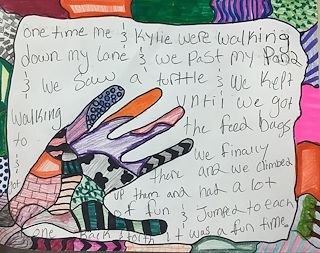 one time me & Kylie were walking
down my lane & we past my Pond
& we saw a turttle & we kept
walking until we got
to the feed bags
& we finally
got there and we climbed
up them and had a lot
of fun & Jumped to each
one back & forth it was a fun time.